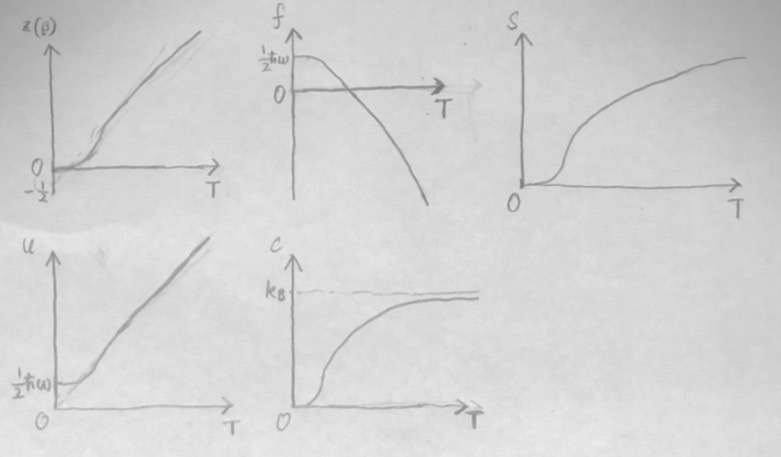 z(β)
0
-½
T
f
½ħω
0
T
S
0
T
u
½ħω
0
T
c
kB
0
T